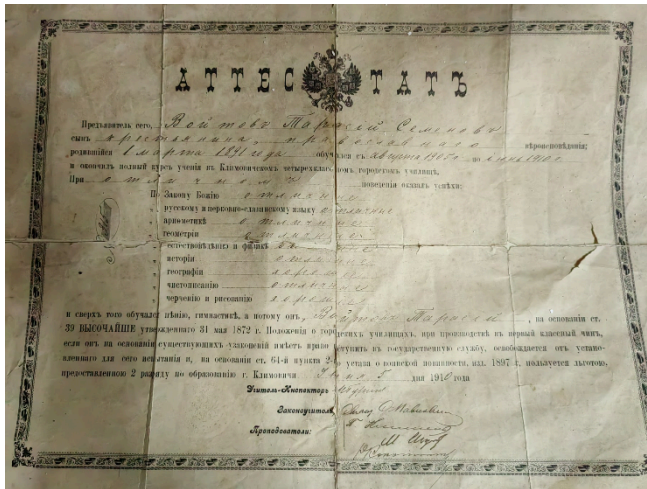 АТТЕСТАТЪ
Предъявитель сего, Войтовъ Тарасій Семеновъ
сынъ крестьянина, православнаго вѣроисповѣданія;
родившійся 8 марта 1891 года обучался съ августа 1905 г. по іюнь 1910 г.
и окончилъ полный курсъ ученія въ Климовичскомъ четырехклассномъ городскомъ училищѣ.
При отличномъ поведеніи оказалъ успѣхи:
По Закону Божію отличные
„ русскому и церковно-славянскому языку отличные
„ ариѳметикѣ отличные
„ геометріи отличные
„ естествовѣдѣнію и физикѣ
„ исторіи отличные
„ географіи хорошіе
„ чистописанію отличные
„ черченію и рисованію хорошіе
и сверхъ того обучался пѣнію, гимнастикѣ, а потому онъ, Войтовъ Тарасій, на основаніи ст.
39 ВЫСОЧАЙШЕ утвержденнаго 31 мая 1872 г. Положенія о городскихъ училищахъ, при производствѣ въ первый классный чинъ,
если онъ на основаніи существующихъ узаконеній имѣетъ право вступить въ государственную службу, освобождается отъ установ-
леннаго для сего испытанія и, на основаніи ст. 64-й пункта 2-го устава о воинской повинности, изд. 1897 г., пользуется льготою,
предоставленною 2 разряду по образованію г. Климовичи Іюня 5 дня 1910 года
Учитель-Инспекторъ
Законоучитель
Преподаватели: